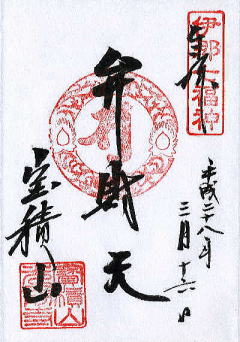 奉拝
伊那七福神
弁財天
平成二十八年
三月十六日
宝積山